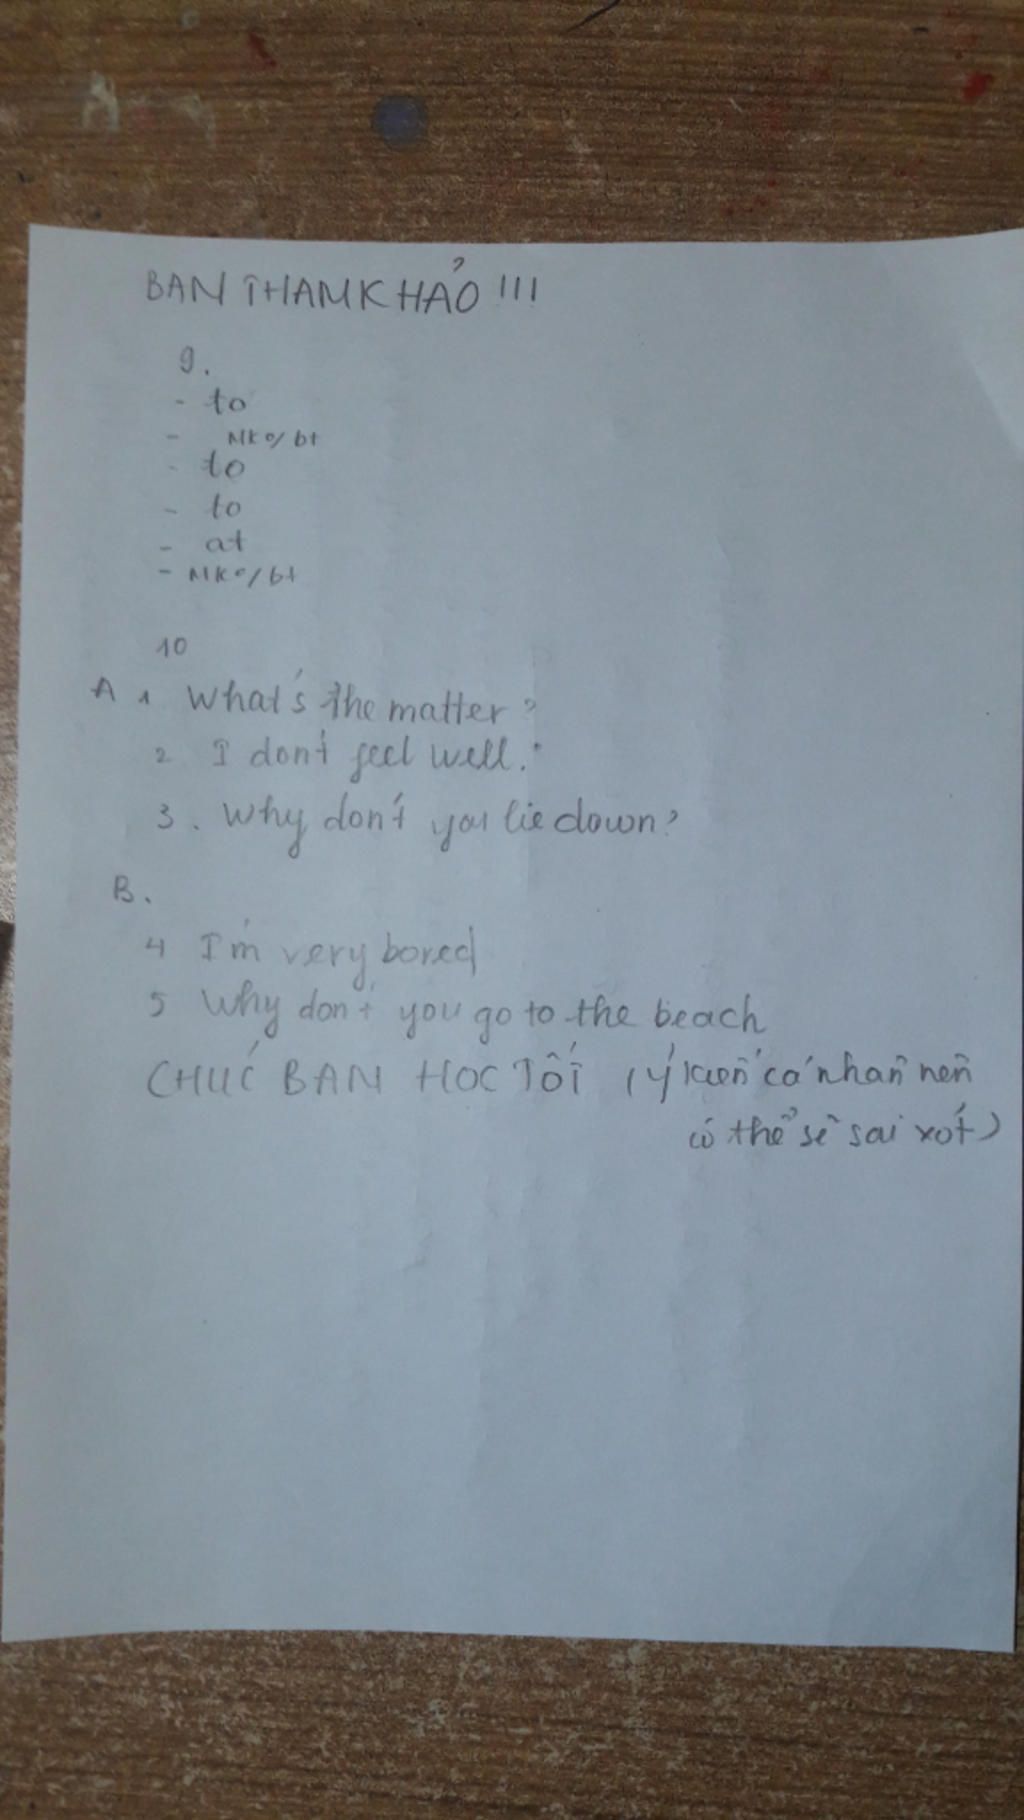 BAN THAM KHẢO !!!
9.
- to
- Mk o/ bt
- to
- to
- at
- Mk o/ bt
10
A 1 What's the matter?
2 I don't feel well.
3. Why don't you lie down?
B.
4 I'm very bored
5 Why don't you go to the beach
CHÚC BAN HOC TỐT (ý kiến cá nhân nên
có thể sẽ sai xót)